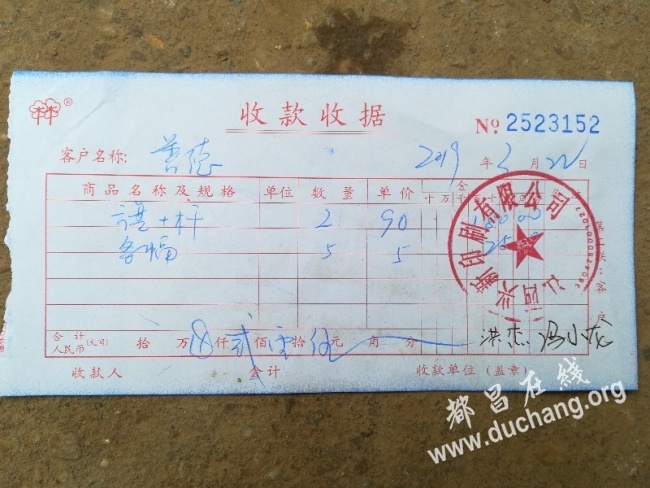 收款收据
№ 2523152
客户名称: 善德 2019年3月22日
商品名称及规格 单位 数量 单价 金
十 万 千
旗+杆 2 90
条幅 5 5 25
合计人民币(大写) 拾 万 仟 贰 佰 零 拾 伍 元 角 分
洪杰 冯小龙
收款人 会计 收款单位(盖章)
印刷有限公司
都昌在线
www.duchang.org